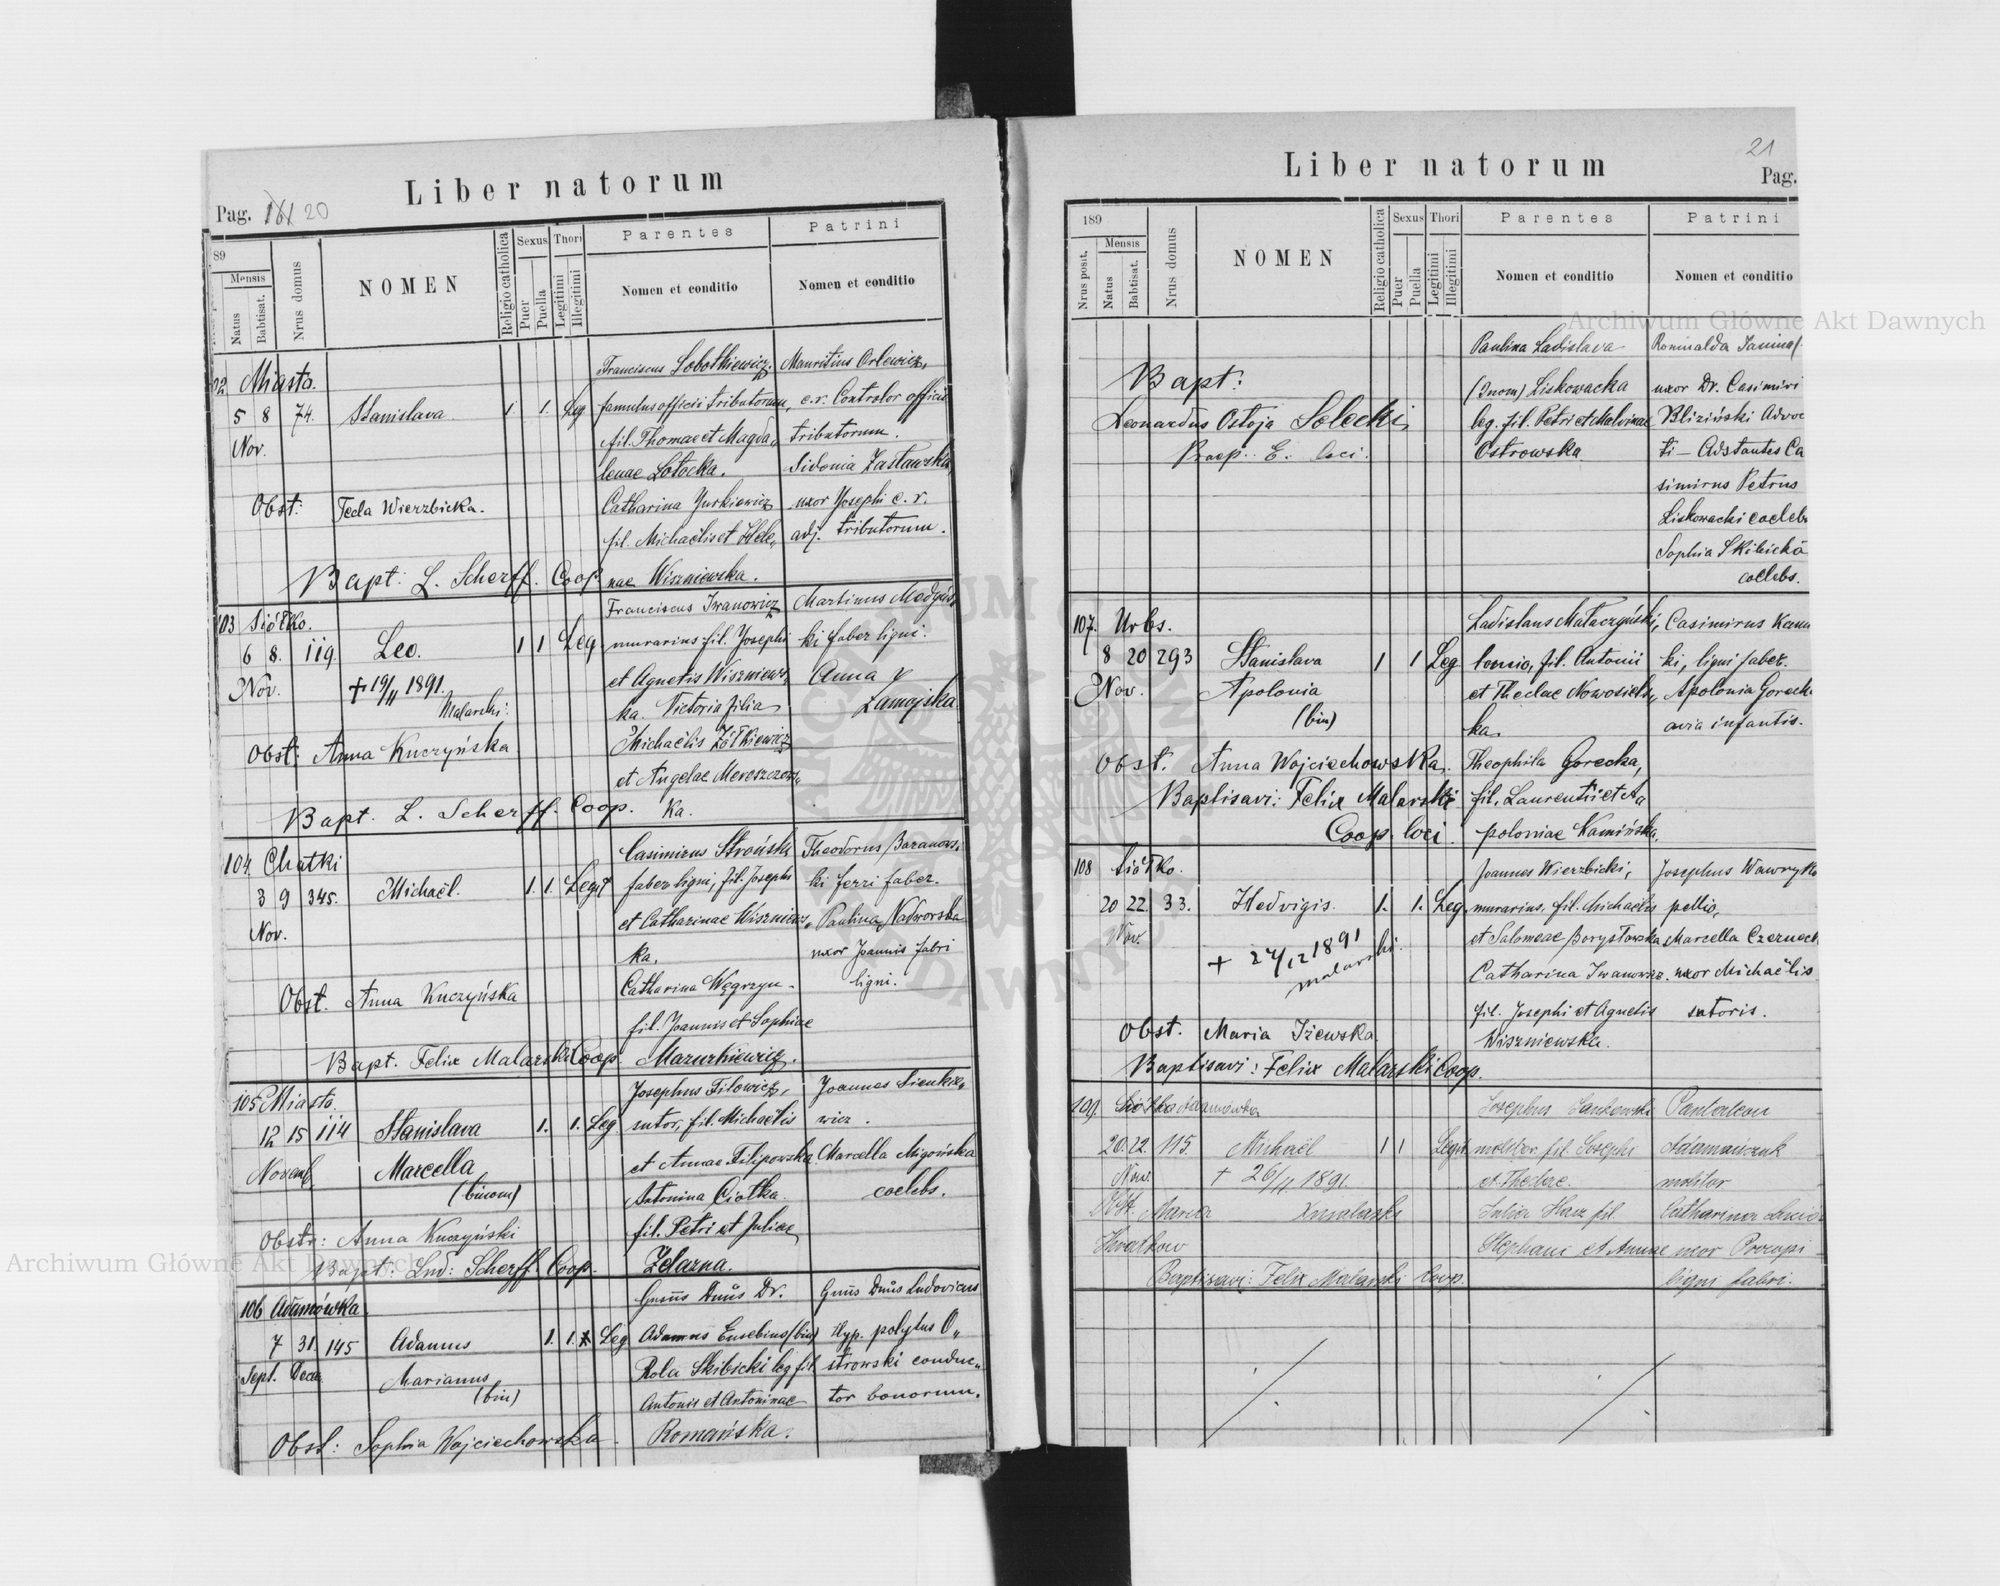 Liber natorum
Pag. 161 20
89
Mensis
Natus
Babtisat.
Nrus domus
NOMEN
Religio catholica
Sexus
Puer
Puella
Thori
Legitimi
Illegitimi
Parentes
Nomen et conditio
Patrini
Nomen et conditio
102 Miasto.
5 8 74. Stanislava 1. 1. Leg
Nov.
Obst: Tecla Wierzbicka.
Bapt: L. Scherff. Coop.
Franciscus Lobotkiewicz.
famulus officii tributorum,
fil. Thomae et Magda„
lenae Łotocka.
Catharina Jurkiewicz
fil. Michaëlis et Hele„
nae Wiszniewska.
Mauritius Orlewicz,
c.r. Controlor officii
tributorum.
Sidonia Zasławska
uxor Josephi c. r.
adj. tributorum.
103 Siółko.
6 8. 119. Leo. 1 1 Leg
Nov. + 19/11 1891.
Malarski.
Obst: Anna Kuczyńska
Bapt. L. Scherff. Coop.
Franciscus Iwanowicz
murarius fil. Josephi
et Agnetis Wiszniews„
ka. Victoria filia
Michaëlis Żółkiewicz
et Angelae Moroszczows„
ka.
Martinus Medyńs„
ki faber ligni.
Anna
Zamojska
104 Chatki
3 9 345. Michaël. 1. 1. Legit
Nov.
Obst. Anna Kuczyńska
Bapt. Felix Malarski Coop
Casimirus Stroński
faber ligni, fil. Josephi
et Catharinae Wiszniews„
ka.
Catharina Węgrzyn -
fil. Joannis et Sophiae
Mazurkiewicz.
Theodorus Baranows„
ki ferri faber.
Paulina Nadworska
uxor Joannis fabri
ligni.
105 Miasto.
12 15 114 Stanislava 1. 1. Leg
Novemb. Marcella
(binom)
Obstr: Anna Kuczyński
Bapt: Lud: Scherff. Coop.
Josephus Filowicz,
sutor, fil. Michaëlis
et Annae Filipowska
Antonina Ciołka.
fil. Petri et Juliae
Żelazna.
Joannes Sienkie„
wicz.
Marcella Migońska
coelebs.
106 Adamówka
7 31 145 Adamus 1. 1. Leg
Sept. Dec. Marianus
(bin)
Obst: Sophia Wojciechowska
Gnsus Dnus Dr.
Adamus Eusebius (bin)
Rola Skibicki leg fil.
Antonii et Antoninae
Romańska.
Gnus Dnus Ludovicus
Hyp. polytus O„
strowski conduc„
tor bonorum.
Liber natorum
21
Pag.
189
Nrus posit.
Mensis
Natus
Babtisat.
Nrus domus
NOMEN
Religio catholica
Sexus
Puer
Puella
Thori
Legitimi
Illegitimi
Parentes
Nomen et conditio
Patrini
Nomen et conditio
Bapt:
Leonardus Ostoja Solecki,
Praep. E. loci.
Paulina Ladislava
(2nom) Liskowacka
leg. fil. Petri et Malvinae
Ostrowska
Romualda Janina
uxor Dr. Casimiri
Bliziński Advoc
ti - Adstantes Ca
simirus Petrus
Liskowacki coelebs
Sophia Skibicka
coelebs.
107. Urbs.
8 20 293 Stanislava 1 1 Leg
Nov. Apolonia
(bin)
Obst. Anna Wojciechowska.
Baptisavi: Felix Malarski
Coop. loci.
Ladislaus Mataczyński,
lonio, fil. Antonii
et Theclae Nowosiels„
ka.
Theophila Gorecka,
fil. Laurentii et A
poloniae Kamińska.
Casimirus Kami
ki, ligni faber.
Apolonia Goreck
avia infantis.
108 Siółko.
20 22. 33. Hedvigis. 1. 1. Leg
Nov.
+ 24/12 1891
Malarski.
Obst. Maria Iżewska
Baptisavi: Felix Malarski Coop.
Joannes Wierzbicki,
murarius, fil. Michaëlis
et Salomeae Borysławska
Catharina Iwanowicz.
fil. Josephi et Agnetis
Wiszniewska.
Josephus Wawryk
pellio,
Marcella Czerneck
uxor Michaëlis
sutoris.
109. Siółko Adamówka
20. 22. 115. Michaël 1 1 Legit.
Nov. + 26/11 1891.
Obst. Maria Malarski
Kwatkow
Baptisavi: Felix Malarski Coop.
Josephus Jankowski
molitor fil. Josephi
et Theclae.
Julia Harz fil.
Stephani et Annae
Pantaleon
Adamańczuk
molitor
Catharina
uxor Procopi
ligni fabri.
Archiwum Główne Akt Dawnych
Archiwum Główne Akt Dawnych